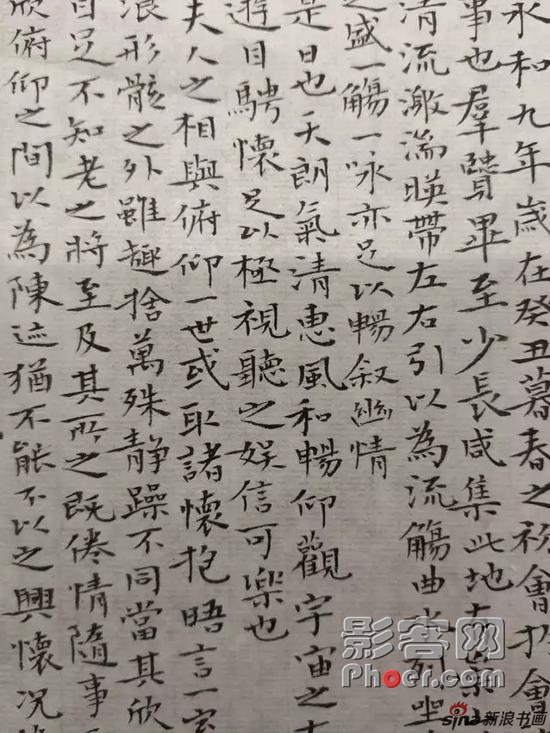 永和九年歲在癸丑暮春之初會於會
事也羣賢畢至少長咸集此地有崇
清流激湍暎帶左右引以為流觴曲水列坐
之盛一觴一詠亦足以暢敘幽情
是日也天朗氣清惠風和暢仰觀宇宙之
遊目騁懷足以極視聽之娛信可樂也
夫人之相與俯仰一世或取諸懷抱晤言一室
浪形骸之外雖趣捨萬殊靜躁不同當其欣
自足不知老之將至及其所之既倦情隨事
欣俯仰之間以為陳迹猶不能不以之興懷況
影客网
Phoer.com
sina新浪书画